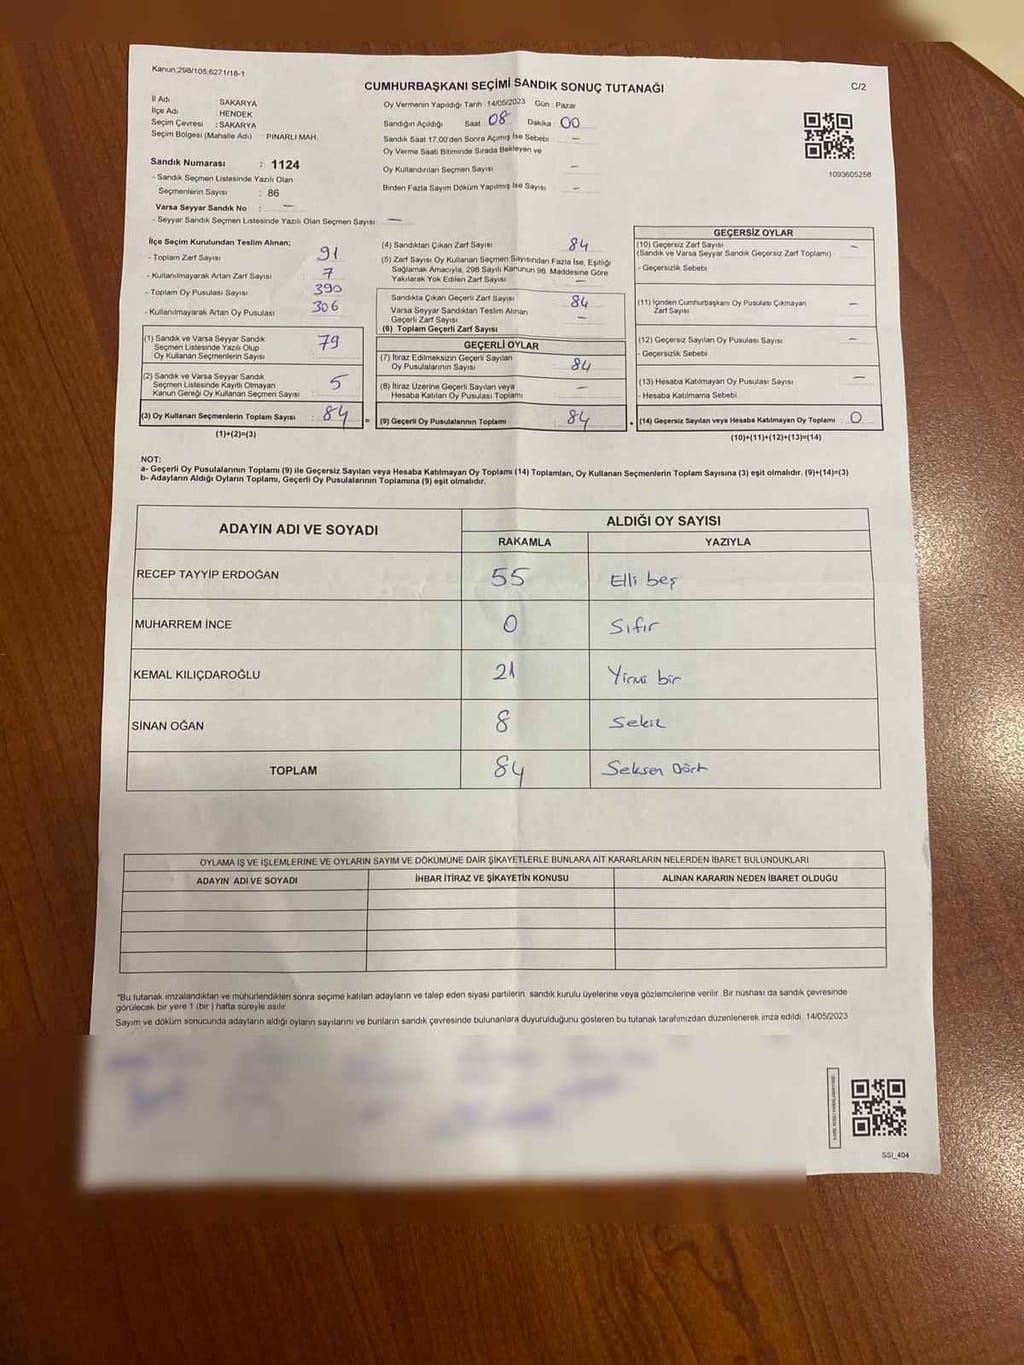 Kanun:298/105;6271/18-1
CUMHURBAŞKANI SEÇİMİ SANDIK SONUÇ TUTANAĞI
C/2
İl Adı SAKARYA
İlçe Adı HENDEK
Seçim Çevresi : SAKARYA
Seçim Bölgesi (Mahalle Adı) : PINARLI MAH.
Oy Vermenin Yapıldığı Tarih : 14/05/2023 Gün : Pazar
Sandığın Açıldığı Saat 08 Dakika 00
Sandık Saat 17.00'den Sonra Açılmış İse Sebebi —
Oy Verme Saati Bitiminde Sırada Bekleyen ve
Oy Kullandırılan Seçmen Sayısı —
Birden Fazla Sayım Döküm Yapılmış İse Sayısı —
1093605258
Sandık Numarası : 1124
- Sandık Seçmen Listesinde Yazılı Olan
Seçmenlerin Sayısı : 86
Varsa Seyyar Sandık No : —
- Seyyar Sandık Seçmen Listesinde Yazılı Olan Seçmen Sayısı : —
İlçe Seçim Kurulundan Teslim Alınan;
- Toplam Zarf Sayısı 91
- Kullanılmayarak Artan Zarf Sayısı 7
- Toplam Oy Pusulası Sayısı 390
- Kullanılmayarak Artan Oy Pusulası 306
(1) Sandık ve Varsa Seyyar Sandık
Seçmen Listesinde Yazılı Olup
Oy Kullanan Seçmenlerin Sayısı 79
(2) Sandık ve Varsa Seyyar Sandık
Seçmen Listesinde Kayıtlı Olmayan
Kanun Gereği Oy Kullanan Seçmen Sayısı 5
(3) Oy Kullanan Seçmenlerin Toplam Sayısı : 84 =
(1)+(2)=(3)
(4) Sandıktan Çıkan Zarf Sayısı 84
(5) Zarf Sayısı Oy Kullanan Seçmen Sayısından Fazla İse, Eşitliği
Sağlamak Amacıyla, 298 Sayılı Kanunun 98. Maddesine Göre
Yakılarak Yok Edilen Zarf Sayısı —
Sandıkta Çıkan Geçerli Zarf Sayısı 84
Varsa Seyyar Sandıktan Teslim Alınan
Geçerli Zarf Sayısı —
(6) Toplam Geçerli Zarf Sayısı
GEÇERLİ OYLAR
(7) İtiraz Edilmeksizin Geçerli Sayılan
Oy Pusulalarının Sayısı 84
(8) İtiraz Üzerine Geçerli Sayılan veya
Hesaba Katılan Oy Pusulası Toplamı —
(9) Geçerli Oy Pusulalarının Toplamı 84 +
GEÇERSİZ OYLAR
(10) Geçersiz Zarf Sayısı —
(Sandık ve Varsa Seyyar Sandık Geçersiz Zarf Toplamı)
- Geçersizlik Sebebi
(11) İçinden Cumhurbaşkanı Oy Pusulası Çıkmayan
Zarf Sayısı —
(12) Geçersiz Sayılan Oy Pusulası Sayısı —
- Geçersizlik Sebebi
(13) Hesaba Katılmayan Oy Pusulası Sayısı —
- Hesaba Katılmama Sebebi
(14) Geçersiz Sayılan veya Hesaba Katılmayan Oy Toplamı 0
(10)+(11)+(12)+(13)=(14)
NOT:
a- Geçerli Oy Pusulalarının Toplamı (9) ile Geçersiz Sayılan veya Hesaba Katılmayan Oy Toplamı (14) Toplamları, Oy Kullanan Seçmenlerin Toplam Sayısına (3) eşit olmalıdır. (9)+(14)=(3)
b- Adayların Aldığı Oyların Toplamı, Geçerli Oy Pusulalarının Toplamına (9) eşit olmalıdır.
ADAYIN ADI VE SOYADI
ALDIĞI OY SAYISI
RAKAMLA YAZIYLA
RECEP TAYYİP ERDOĞAN 55 Elli beş
MUHARREM İNCE 0 Sıfır
KEMAL KILIÇDAROĞLU 21 Yirmi bir
SİNAN OĞAN 8 Sekiz
TOPLAM 84 Seksen Dört
OYLAMA İŞ VE İŞLEMLERİNE VE OYLARIN SAYIM VE DÖKÜMÜNE DAİR ŞİKAYETLERLE BUNLARA AİT KARARLARIN NELERDEN İBARET BULUNDUKLARI
ADAYIN ADI VE SOYADI İHBAR İTİRAZ VE ŞİKAYETİN KONUSU ALINAN KARARIN NEDEN İBARET OLDUĞU
"Bu tutanak imzalandıktan ve mühürlendikten sonra seçime katılan adayların ve talep eden siyasi partilerin sandık kurulu üyelerine veya gözlemcilerine verilir. Bir nüshası da sandık çevresinde
görülecek bir yere 1 (bir) hafta süreyle asılır
Sayım ve döküm sonucunda adayların aldığı oyların sayılarını ve bunların sandık çevresinde bulunanlara duyurulduğunu gösteren bu tutanak tarafımızdan düzenlenerek imza edildi. 14/05/2023
SSI_404